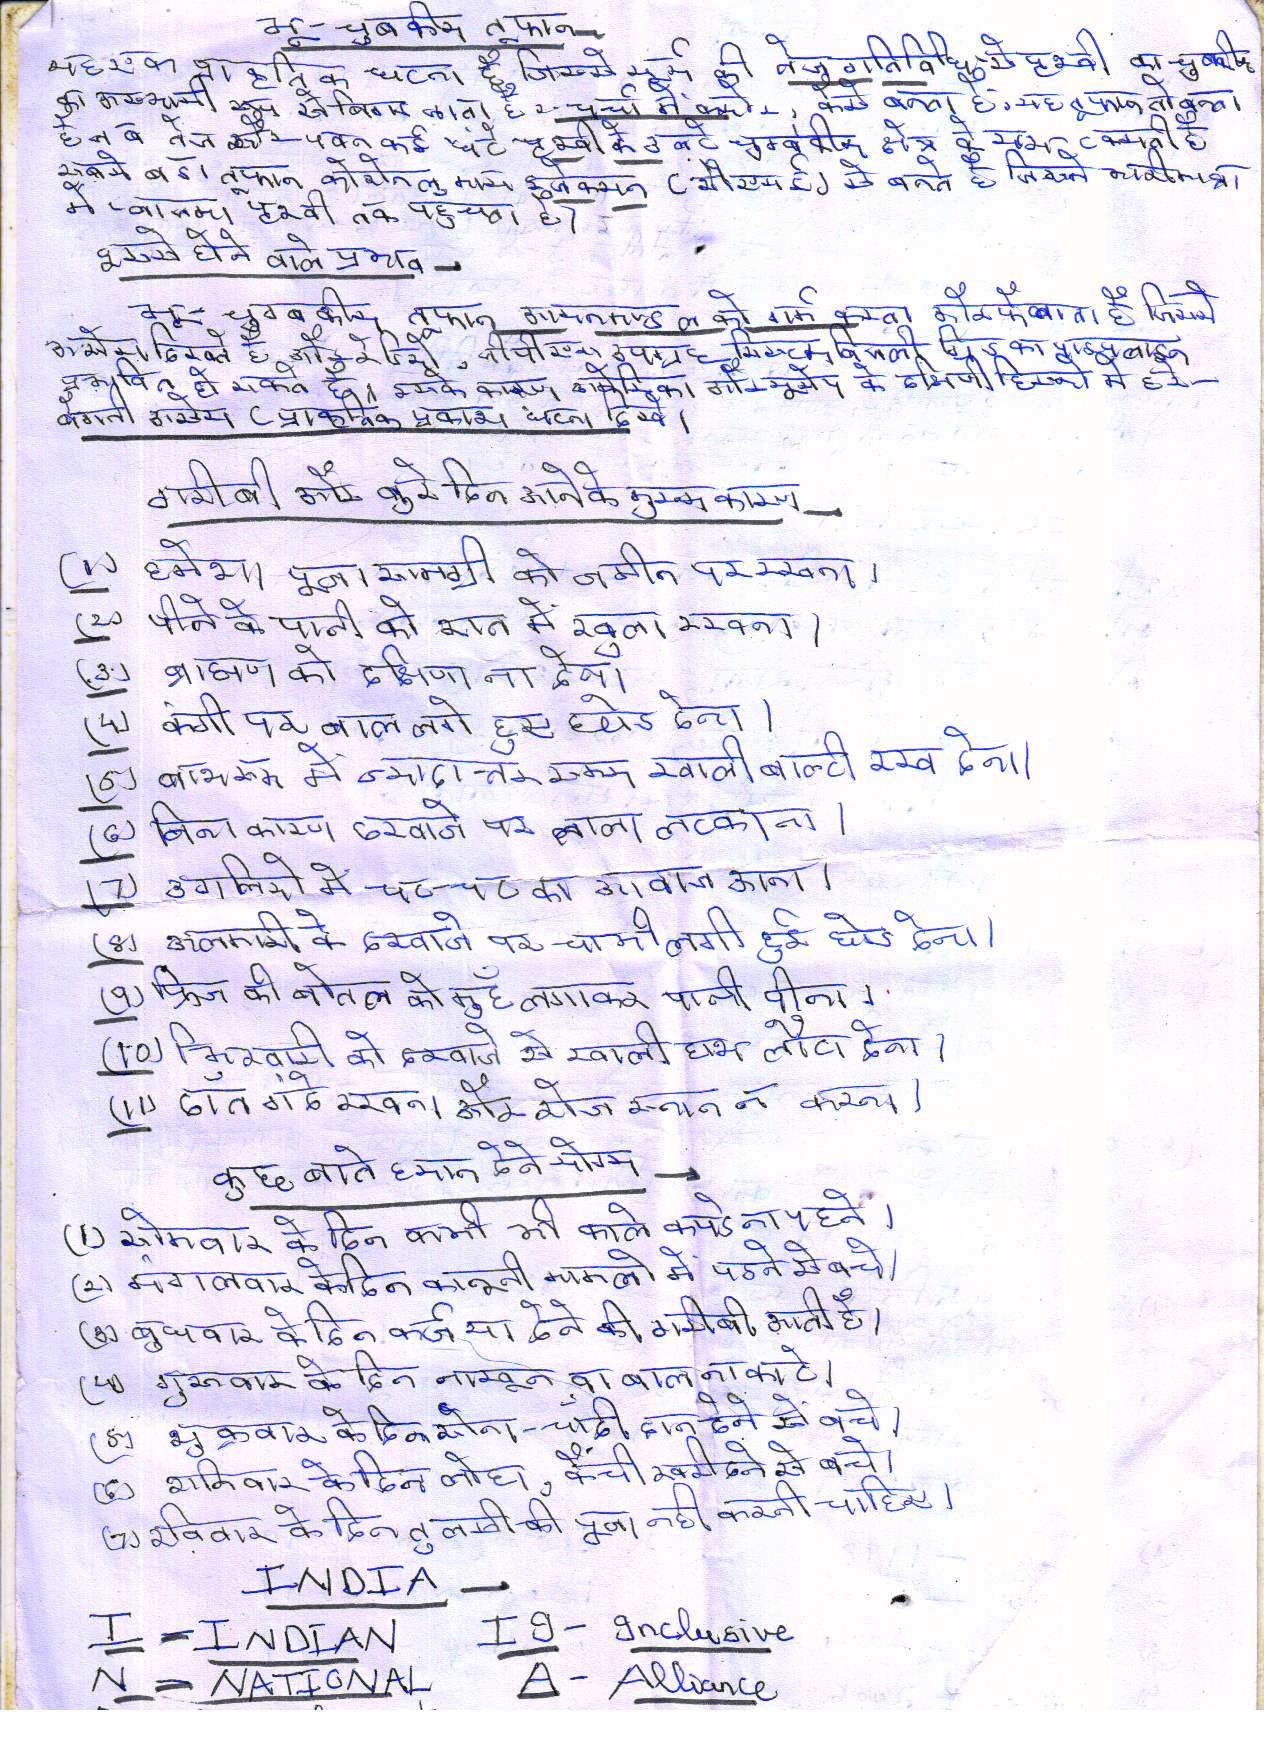 भू-चुबकीय तूफान
यह एक प्राकृतिक घटना है जिससे सूर्य की तेज गतिविधि से पृथ्वी का चुबकीय
का अस्थायी रूप से बिगड़ जाता है चर्चा में क्यो, कैसे बनता है, यह तूफान तो बनता
है जब तेज सौर पवन कई घंटे पृथ्वी के उबटे चुम्बकीय क्षेत्र के साथ
सबसे बडा तूफान कोरोनल मास इजेक्सन (सीएमई) से बनते है जिससे भारी मात्रा
में प्लाजमा पृथ्वी तक पहुचता है।
इससे होने वाले प्रभाव
भू-चुम्बकीय तूफान आयनमण्डल को गर्म करता और फैलाता है जिससे
अरोरा दिखते है और रेडियो, जीपीएस उपग्रह सिस्टम बिजली ग्रिड का पाइपलाइन
प्रभावित हो सकते है। इसके कारण अमेरिका और यूरोप के दक्षिणी हिस्सो में हरे-
बैंगनी अरोरा (प्राकृतिक प्रकाश घटना दिखे।
गरीबी और बुरे दिन आने के मुख्य कारण
(1) हमेशा पूजा सामग्री को जमीन पर रखना।
(2) पीने के पानी को रात में खुला रखना।
(3) ब्राह्मण को दक्षिणा ना देना।
(4) कंगी पर बाल लगे हुए छोड देना।
(5) बाथरूम में ज्यादा-तर समय खाली बाल्टी रख देना।
(6) बिना कारण दरवाजे पर ताला लटकाना।
(7) उंगलियो में चट-चट का आवाज आना।
(8) अलमारी के दरवाजे पर चाभी लगी हुई छोड देना।
(9) फ्रिज की बोतल को मुहँ लगाकर पानी पीना।
(10) भिखारी को दरवाजे से खाली हाथ लौटा देना।
(11) दाँत गंदे रखना और रोज स्नान न करना।
कुछ बाते ध्यान देने योग्य
(1) सोमवार के दिन कभी भी काले कपडे ना पहने।
(2) मंगलवार के दिन कानूनी मामलो में पडने से बचे।
(3) बुधवार के दिन कर्ज या देने की गरीबी आती है।
(4) गुरूवार के दिन नाखून वा बाल ना काटे।
(5) शुक्रवार के दिन सोना-चाँदी दान देने से बचे।
(6) शनिवार के दिन लोहा, कैंची खरीदने से बचे।
(7) रविवार के दिन तुलसी की पूजा नही करनी चाहिए।
INDIA
I = INDIAN I 9 - Inclusive
N = NATIONAL A - Alliance